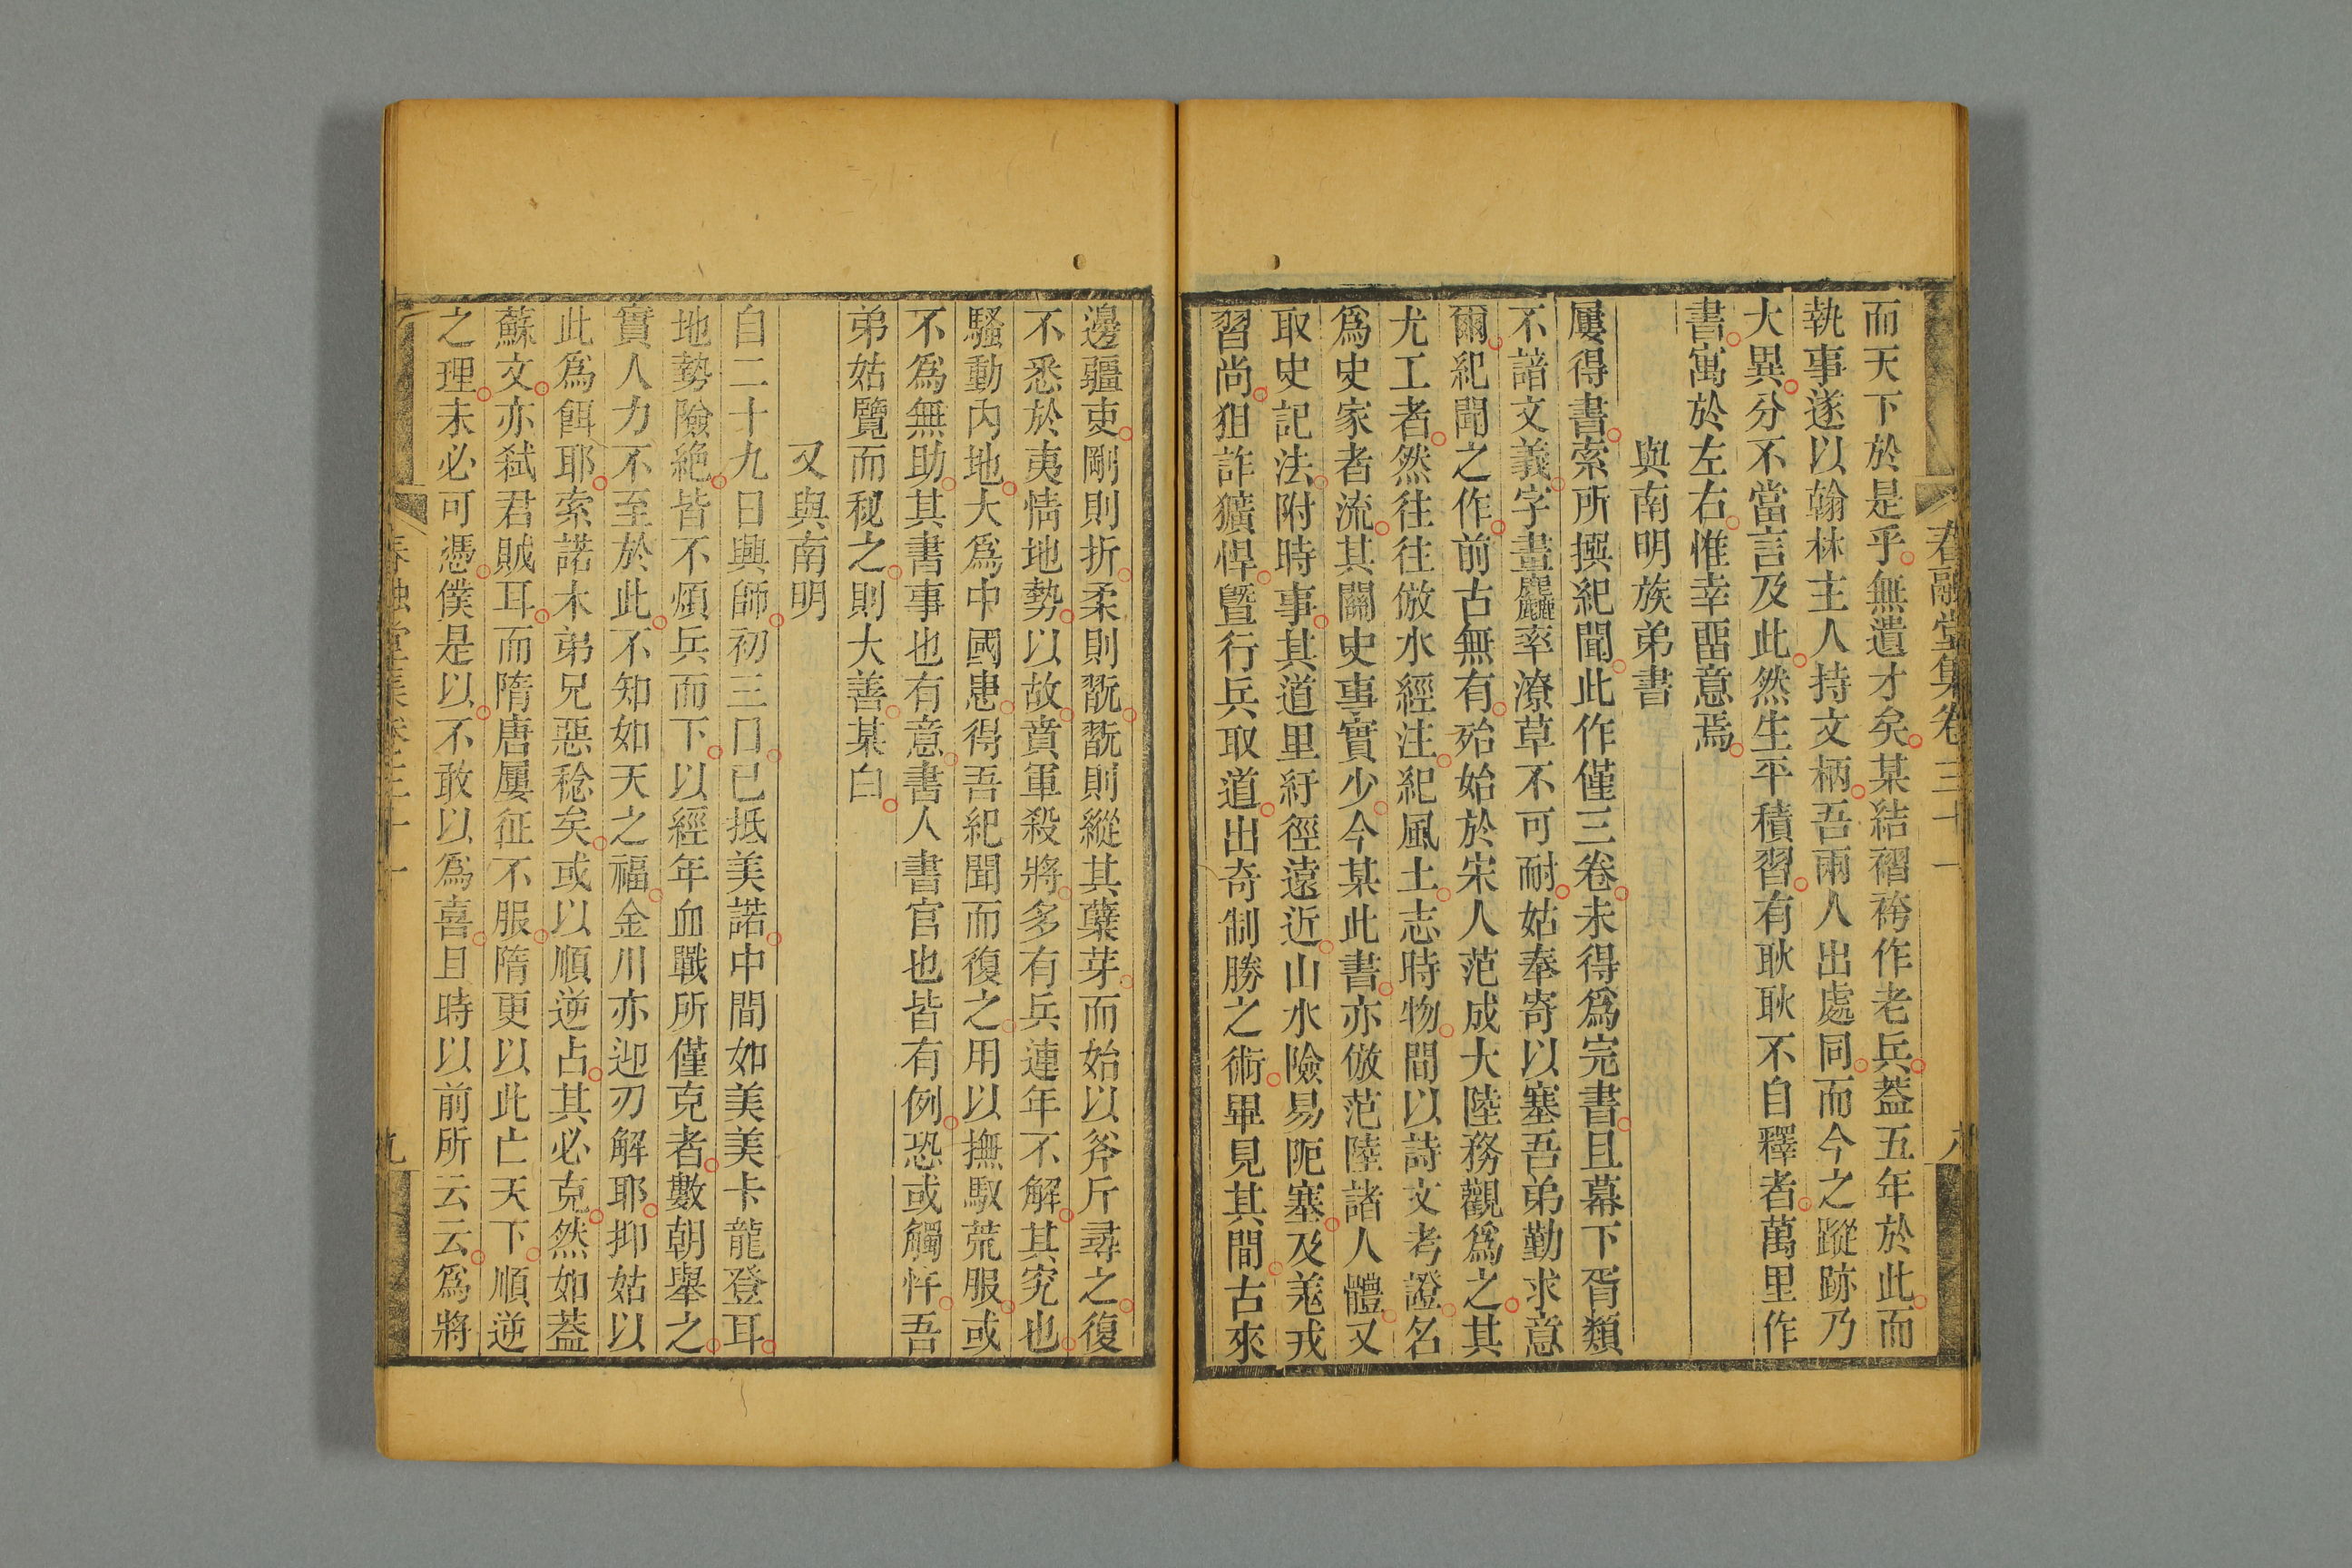 春融堂集卷三十一
八
而天下於是乎無遺才矣某結褶袴作老兵葢五年於此而
執事遂以翰林主人持文柄吾兩人出處同而今之蹤跡乃
大異分不當言及此然生平積習有耿耿不自釋者萬里作
書寓於左右惟幸畱意焉
與南明族弟書
屢得書索所撰紀聞此作僅三卷未得爲完書且幕下胥類
不諳文義字畫麤率潦草不可耐姑奉寄以塞吾弟勤求意
爾紀聞之作前古無有殆始於宋人范成大陸務觀爲之其
尤工者然往往倣水經注紀風土志時物間以詩文考證名
爲史家者流其關史事實少今某此書亦倣范陸諸人體又
取史記法附時事其道里紆徑遠近山水險易阨塞及羌戎
習尚狙詐獷悍曁行兵取道出奇制勝之術畢見其間古來
邊疆吏剛則折柔則翫翫則縱其蘖芽而始以斧斤尋之復
不悉於夷情地勢以故賁軍殺將多有兵連年不解其究也
騷動內地大爲中國患得吾紀聞而復之用以撫馭荒服或
不爲無助其書事也有意書人書官也皆有例恐或觸忤吾
弟姑覽而秘之則大善某白
又與南明
自二十九日興師初三日已抵美諾中間如美美卡龍登耳
地勢險絶皆不煩兵而下以經年血戰所僅克者數朝舉之
實人力不至於此不知如天之福金川亦迎刃解耶抑姑以
此爲餌耶索諾木弟兄惡稔矣或以順逆占其必克然如葢
蘇文亦弒君賊耳而隋唐屢征不服隋更以此亡天下順逆
之理未必可憑僕是以不敢以爲喜且時以前所云云爲將
春融堂集卷三十一
九